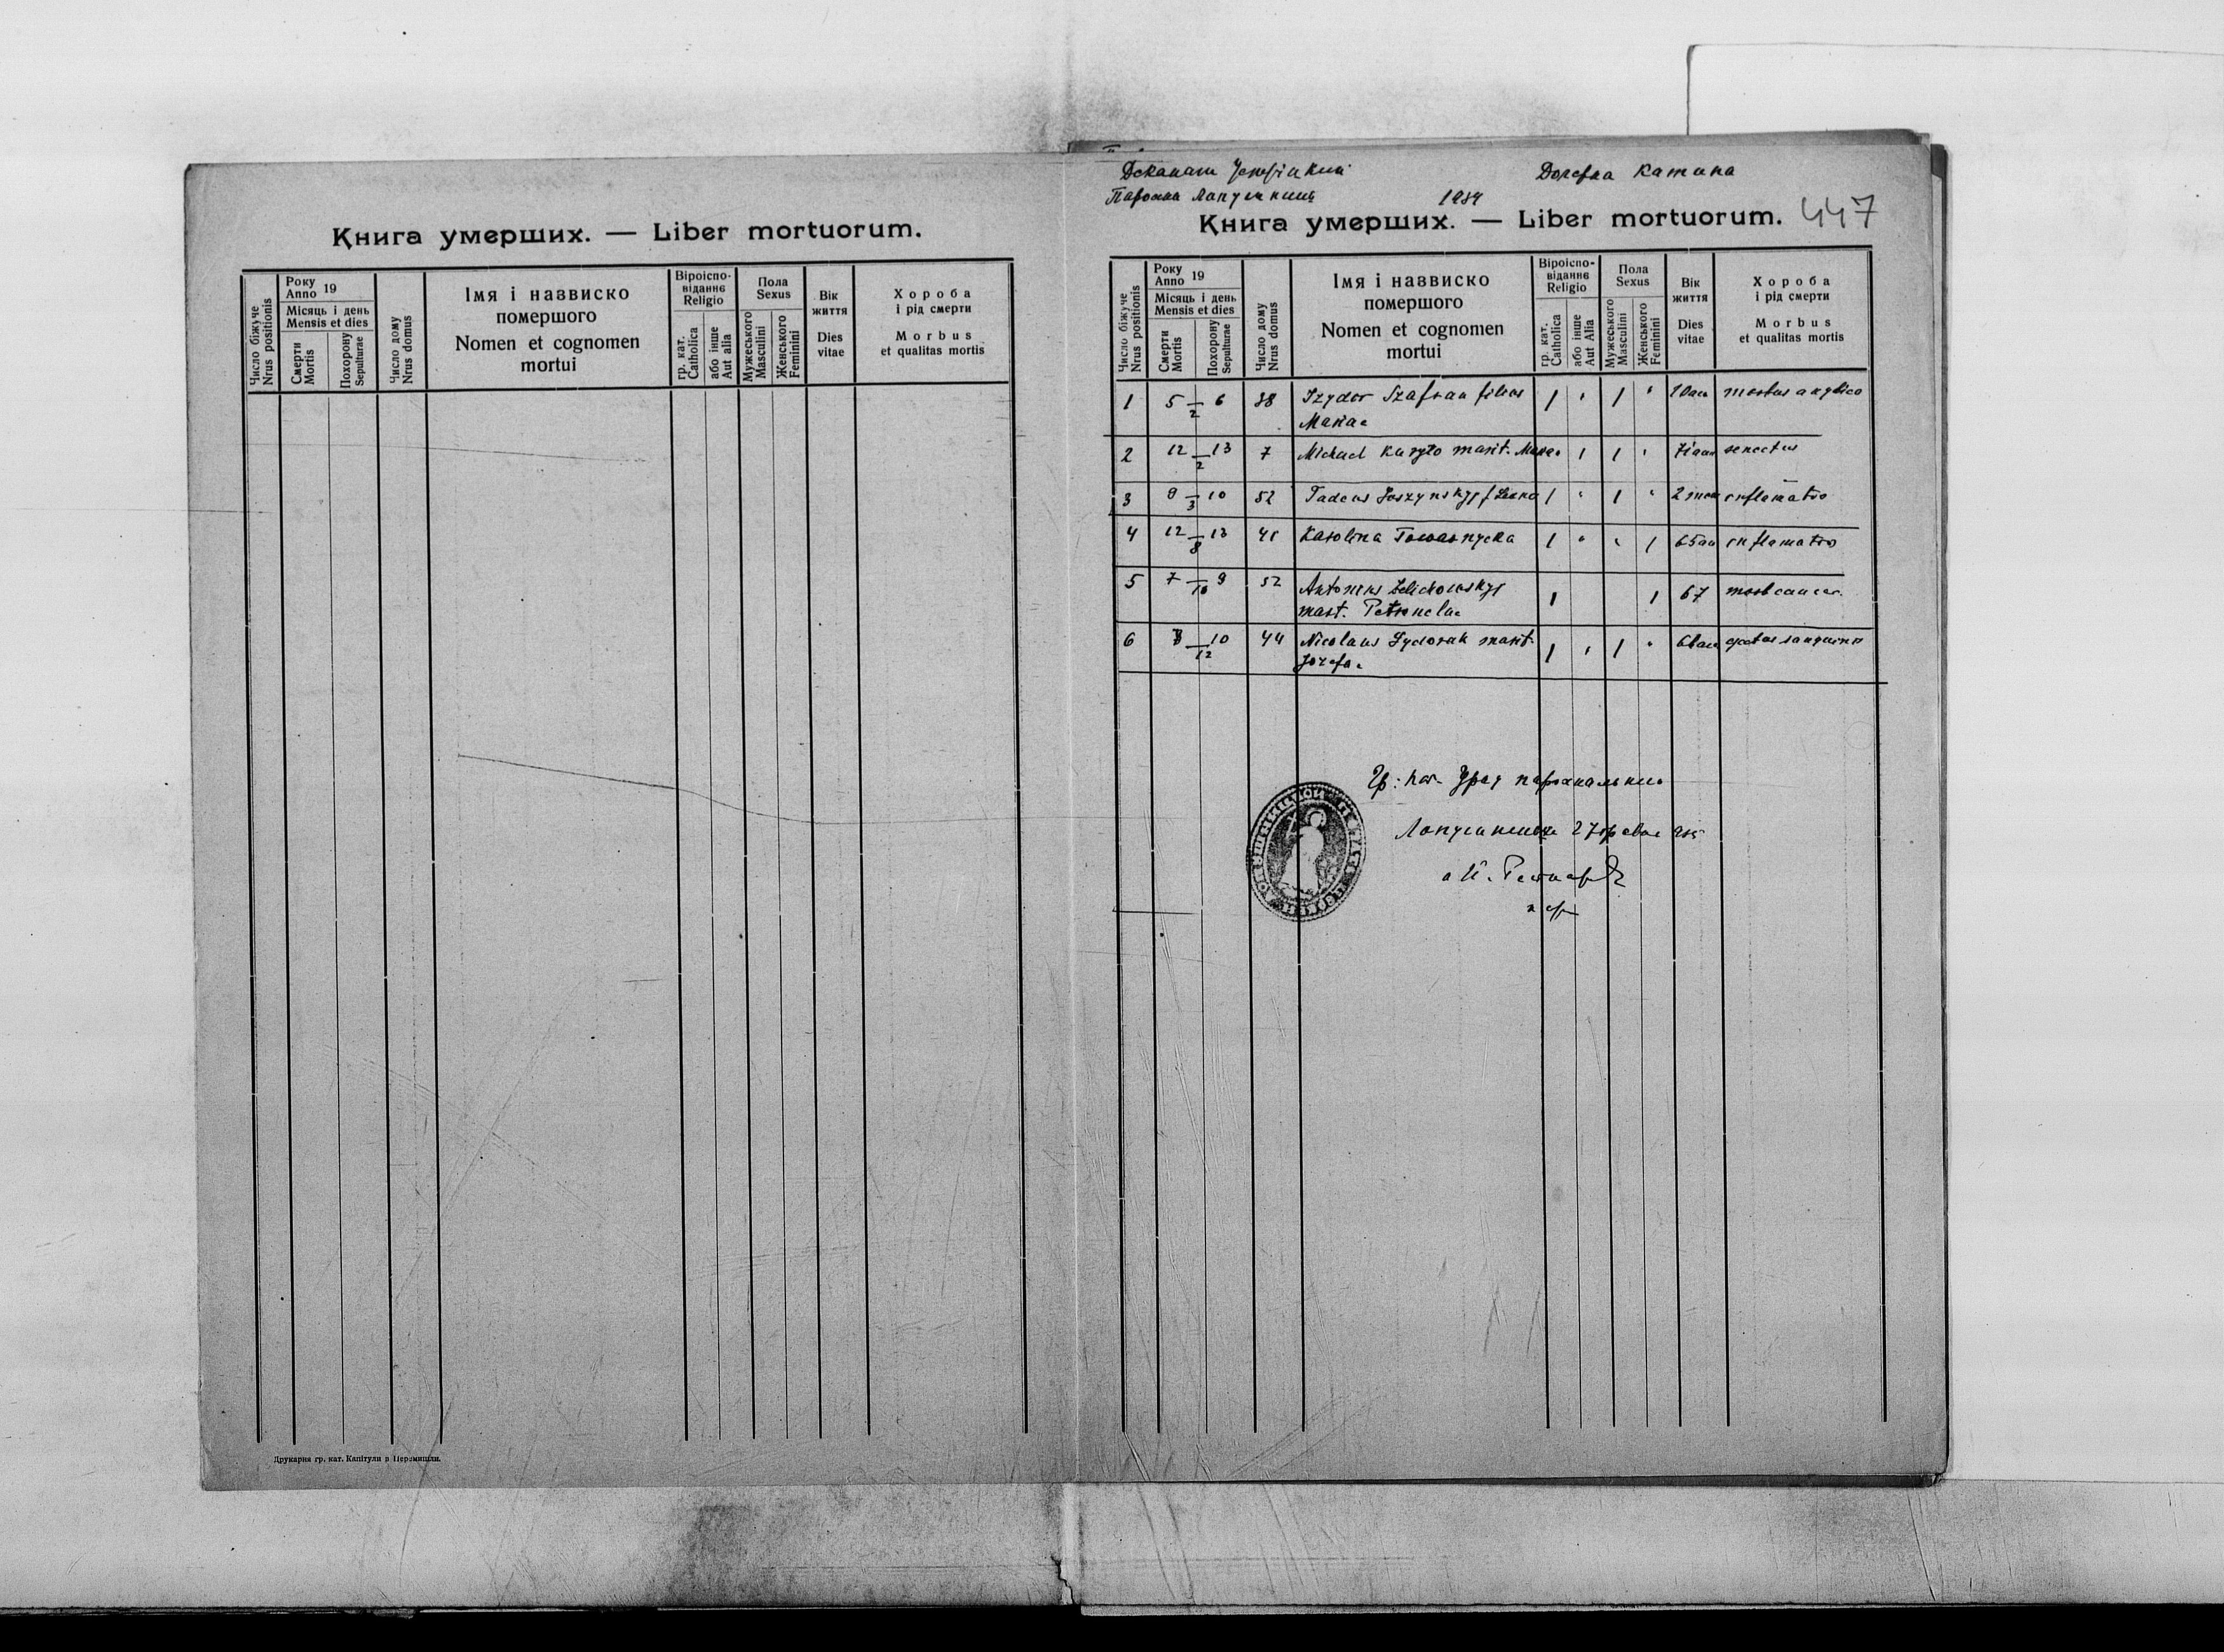 Книга умерших. — Liber mortuorum.
Число біжуче
Nrus positionis
Року
Anno 19
Місяць і день
Mensis et dies
Смерти
Mortis
Похорону
Sepulturae
Число дому
Nrus domus
Імя іназвиско
помершого
Nomen et cognomen
mortui
Віроіспо-
віданнє
Religio
гр. кат.
Catholica
або інше
Aut alia
Пола
Sexus
Мужеського
Masculini
Женського
Feminini
Вік
життя
Dies
vitae
Хороба
і рід смерти
Morbus
et qualitas mortis
Друкарня гр. кат. Капітули в Перемишли.
Деканат
Парохия
1934
Книга умерших. — Liber mortuorum. 447
Число біжуче
Nrus positionis
Року
Anno 19
Місяць і день
Mensis et dies
Смерти
Mortis
Похорону
Sepulturae
Число дому
Nrus domus
Імя і назвиско
помершого
Nomen et cognomen
mortui
Віроіспо-
віданнє
Religio
гр. кат.
Catholica
або інше
Aut Alia
Пола
Sexus
Мужеського
Masculini
Женського
Feminini
Вік
життя
Dies
vitae
Хороба
і рід смерти
Morbus
et qualitas mortis
1 5 — 6 2 38 Izydor Szafran filius 1 1 morbus anglica
Mariae
2 12 — 13 2 7 Michael marit. 1 1 senectus
3 9 — 10 3 52 Tadeus 1 1 2 inflamatio
4 12 — 13 8 41 Karolina Towarnycka 1 1 65 inflamatio
5 7 — 9 10 52 Antonius Zelichowskyj 1 1 67 morb cancer.
marit. Petronelae
6 — 10 12 44 Nicolaus Sydorak marit. 1 1 sanguinis
Jozefae
Гр. кат. Уряд парохіяльний
27